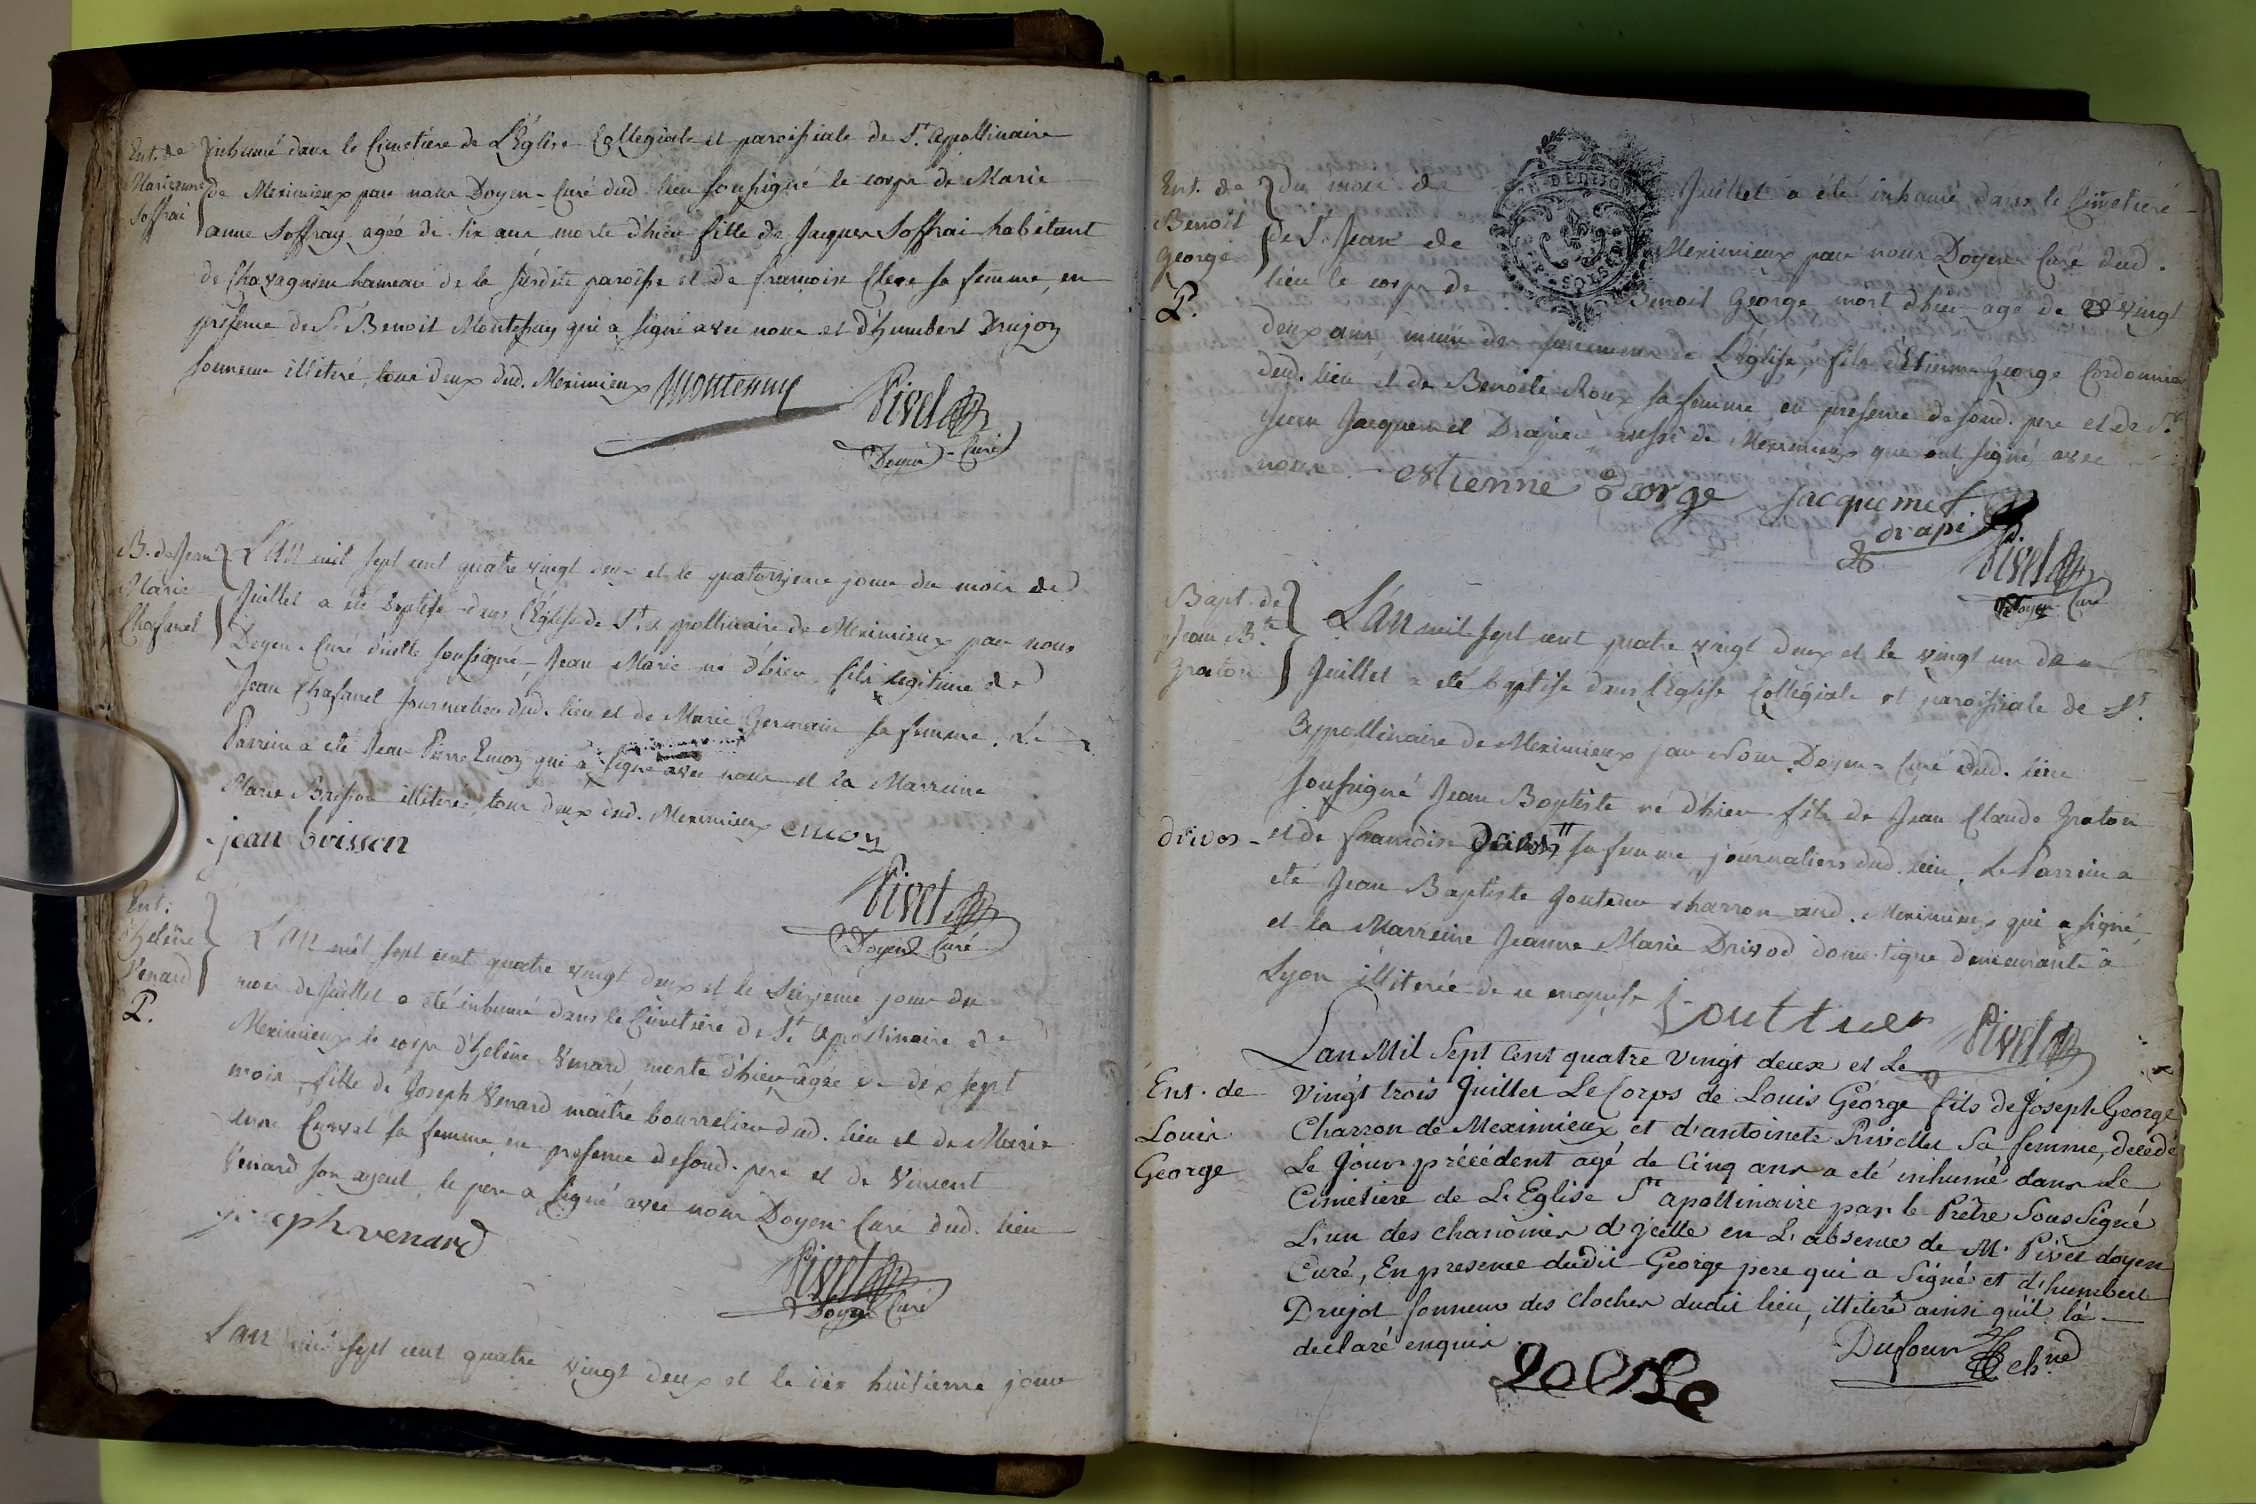 Ent. de
Marieanne
Soffrai
inhumé dans le Cimetière de L'Eglise Collegiale et paroissiale de St. Appollinaire
de Meximieux par nous Doyen-Curé dud. lieu soussigné le corps de Marie
anne Soffray agée de six ans morte d'hier fille de Jacques Soffrai habitant
de Chavagnieu hameau de la susdite paroisse et de françoise Clere sa femme, en
presence de Sr. Benoit Montessuy qui a signé avec nous et d'humbert Drujon
sonneur illiteré, tous deux dud. Meximieux montessuy
Pivet
Doyen-Curé
B. de Jean
Marie
Chafanel
L'an mil sept cent quatre vingt deux et le quatorzieme jour du mois de
Juillet a été baptisé dans l'Eglise de St. Appollinaire de Meximieux par nous
Doyen-Curé d'icelle soussigné, Jean Marie né d'hier fils legitime de
Jean Chafanel Journalier dud. lieu et de Marie Germain sa femme. Le
Parrein a été Jean Pierre Emoz qui a signé avec nous et la Marreine
Marie illiteré, tous deux dud. Meximieux
jean boisson
Pivet
Doyen Curé
Ent.
d'helene
Venard
P.
L'an mil sept cent quatre vingt deux et le seizieme jour du
mois de Juillet a été inhumé dans le Cimetiere de St. Apollinaire de
Meximieux le corps d'helene Venard morte d'hier agée de dix sept
mois, fille de Joseph Venard maitre bourrelier dud. lieu et de Marie
sa femme en presence desond. pere et de Vincent
Venard son ayeul, le pere a signé avec nous Doyen Curé dud. lieu
joseph venard
Pivet
Doyen Curé
L'an mil sept cent quatre vingt deux et le dix huitieme jour
Ent. de
Benoit
George
P.
du mois de Juillet a été inhumé dans le Cimetiere
de St. Jean de Meximieux par nous Doyen Curé dud.
lieu le corps de Benoit George mort d'hier agé de vingt
deux ans, muni des sacremens de L'Eglise, fils d'Etienne George Cordonnier
dud. lieu et de Benoite Roux sa femme en presence de sond. pere et de Sr.
Jean Jacquemet Drapier aussi de Meximieux qui ont signé avec
nous estienne George Jacquemet
drapi
Pivet
Doyen Curé
Bapt. de
Jean Bte.
Graton
L'an mil sept cent quatre vingt deux et le vingt un de
Juillet a été baptisé dans l'Eglise Collégiale et paroissiale de St.
Appollinaire de Meximieux par Nous Doyen Curé dud. lieu
soussigné Jean Baptiste né d'hier fils de Jean Claude Graton
drivos
et de francoise sa femme journaliers dud. lieu. Le Parrein a
été Jean Baptiste Goutteur charron aud. Meximieux qui a signé,
et la Marreine Jeanne Marie Drivod domestique demeurante à
Lyon illiterée de ce enquise
Pivet
Ent. de
Louis
George
Lan Mil Sept Cent quatre vingt deux et Le
vingt trois Juillet Le Corps de Louis George fils de Joseph George
Charron de Meximieux et d'antoinete sa femme, decedé
Le Jour précédent agé de Cinq ans a eté inhumé dans Le
Cimetiere de L'Eglise St apollinaire par le Prêtre Soussigné
L'un des chanoines d'jcelle en L'absence de Mr. Pivet doyen
Curé, En presence dudit George pere qui a Signé et d'humbert
Drujot sonneur des cloches dudit lieu, illiteré ainsi qu'il la
declaré enquis
Dufour Chne